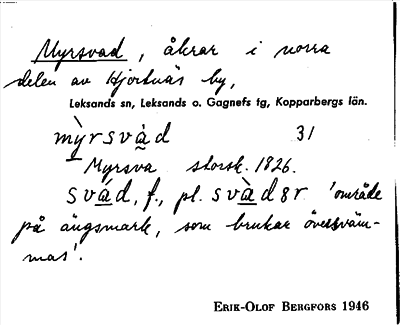 Myrsvad, åkrar i norra
delen av Hjortnäs by,
Leksands sn, Leksands o. Gagnefs tg, Kopparbergs län.
mỳrsvàd 31
Myrsva storsk. 1826.
svád, f., pl. svàdər 'område
på ängsmark, som brukar översväm-
mas'.
ERIK-OLOF BERGFORS 1946